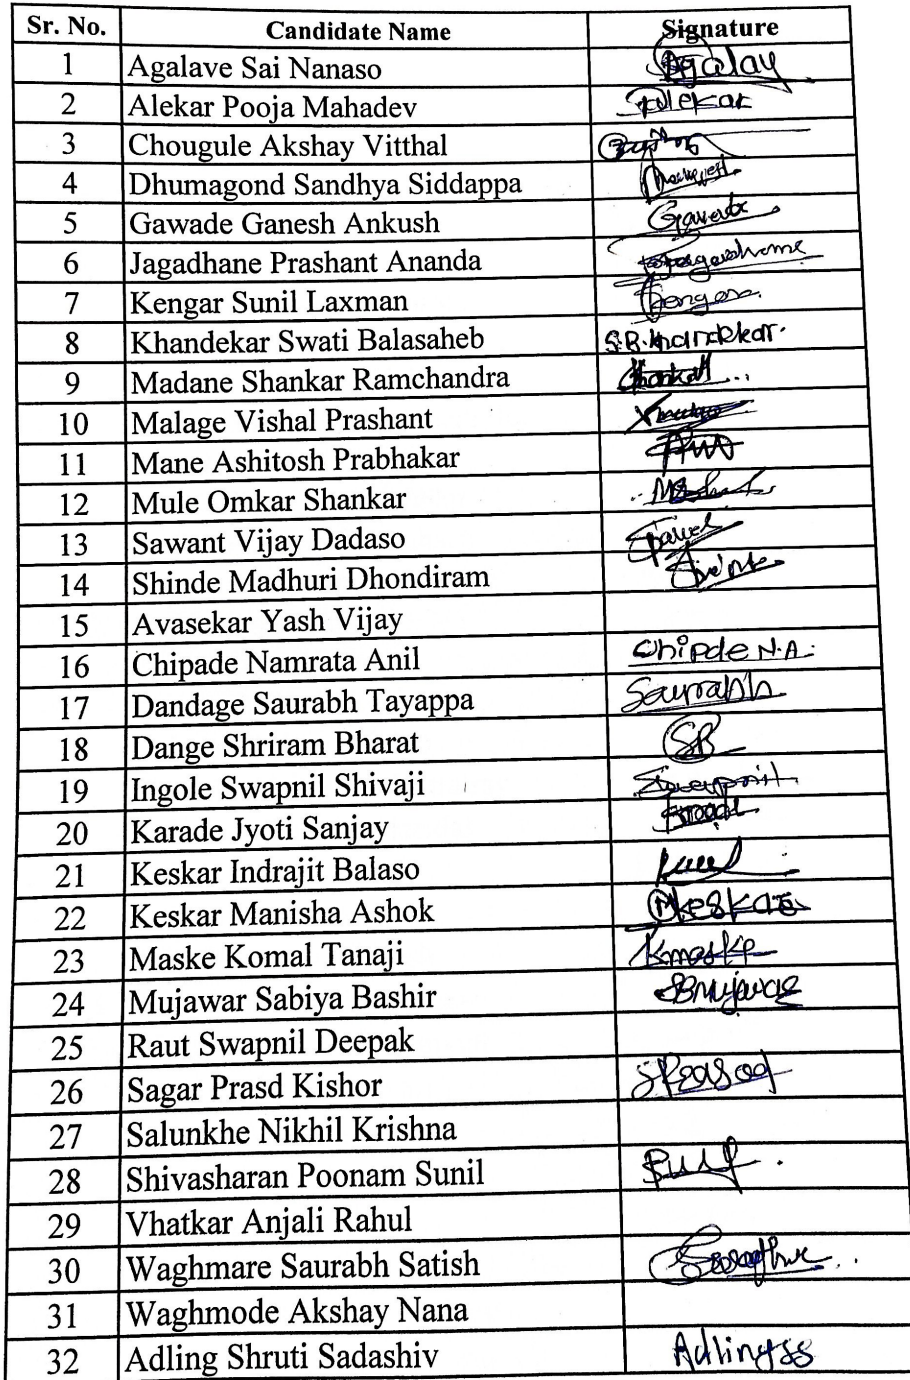 Sr. No. Candidate Name Signature
1 Agalave Sai Nanaso Agalav
2 Alekar Pooja Mahadev Palekar
3 Chougule Akshay Vitthal
4 Dhumagond Sandhya Siddappa
5 Gawade Ganesh Ankush Gawade
6 Jagadhane Prashant Ananda
7 Kengar Sunil Laxman
8 Khandekar Swati Balasaheb S.B.Khandekar.
9 Madane Shankar Ramchandra
10 Malage Vishal Prashant
11 Mane Ashitosh Prabhakar
12 Mule Omkar Shankar
13 Sawant Vijay Dadaso
14 Shinde Madhuri Dhondiram
15 Avasekar Yash Vijay
16 Chipade Namrata Anil Chipde N.A.
17 Dandage Saurabh Tayappa Saurabh
18 Dange Shriram Bharat SB
19 Ingole Swapnil Shivaji
20 Karade Jyoti Sanjay
21 Keskar Indrajit Balaso
22 Keskar Manisha Ashok Mkeskar
23 Maske Komal Tanaji Kmaske
24 Mujawar Sabiya Bashir SBMujawar
25 Raut Swapnil Deepak
26 Sagar Prasd Kishor
27 Salunkhe Nikhil Krishna
28 Shivasharan Poonam Sunil
29 Vhatkar Anjali Rahul
30 Waghmare Saurabh Satish
31 Waghmode Akshay Nana
32 Adling Shruti Sadashiv Adlingss